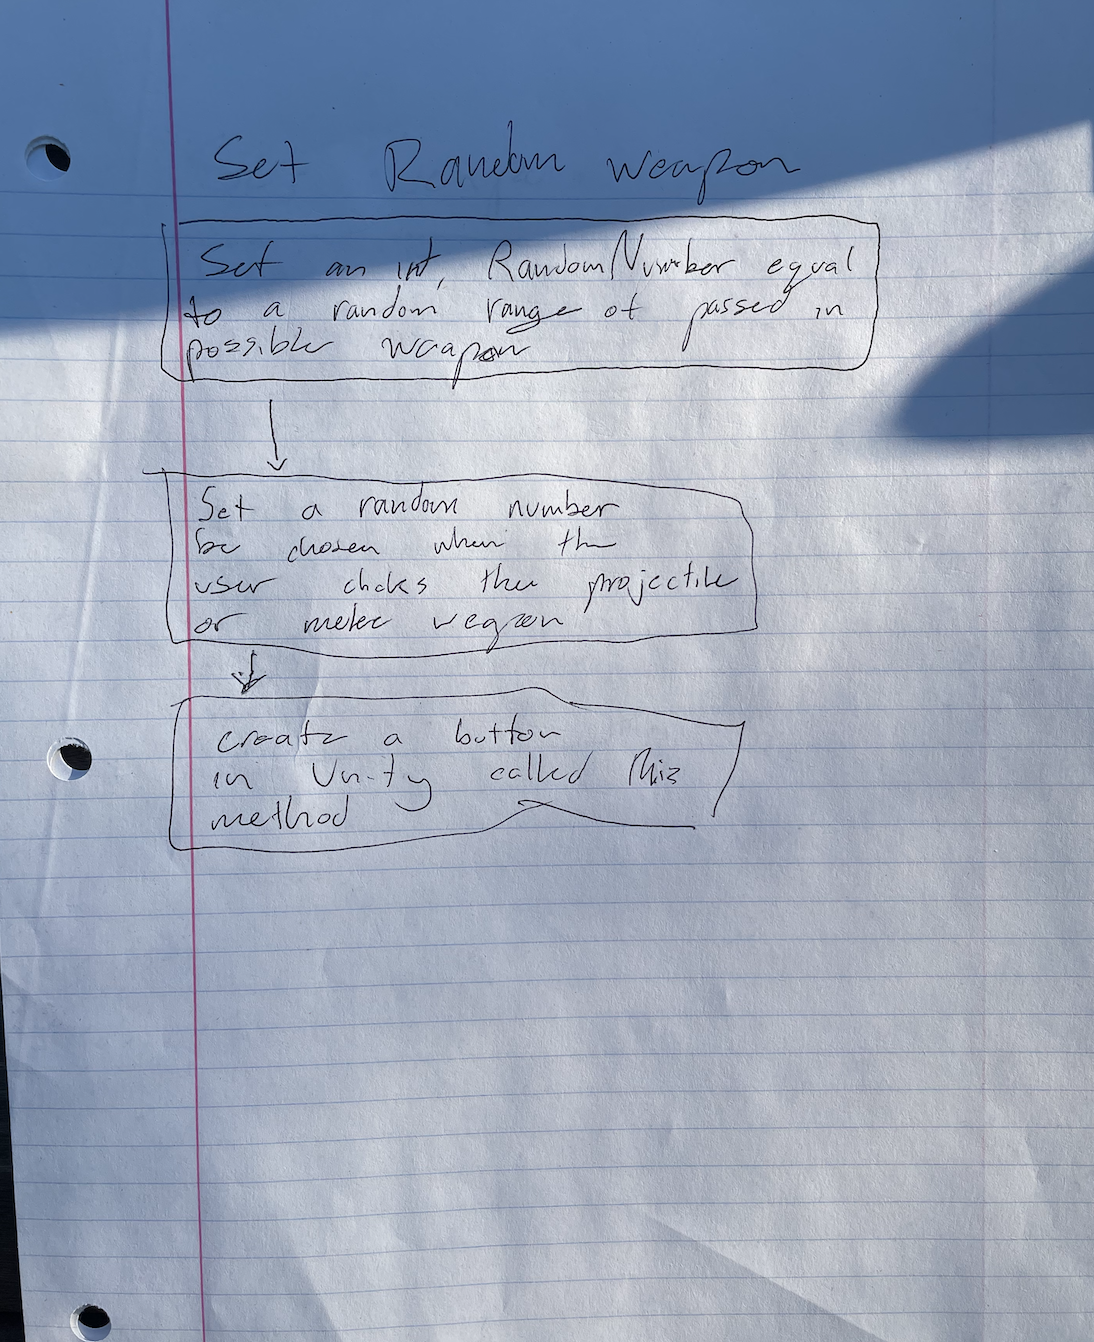 Set Random weapon
Set an int, RandomNumber equal
to a random range of passed in
possible weapon
Set a random number
be chosen when the
user clicks the projectile
or melee weapon
create a button
in Unity called this
method